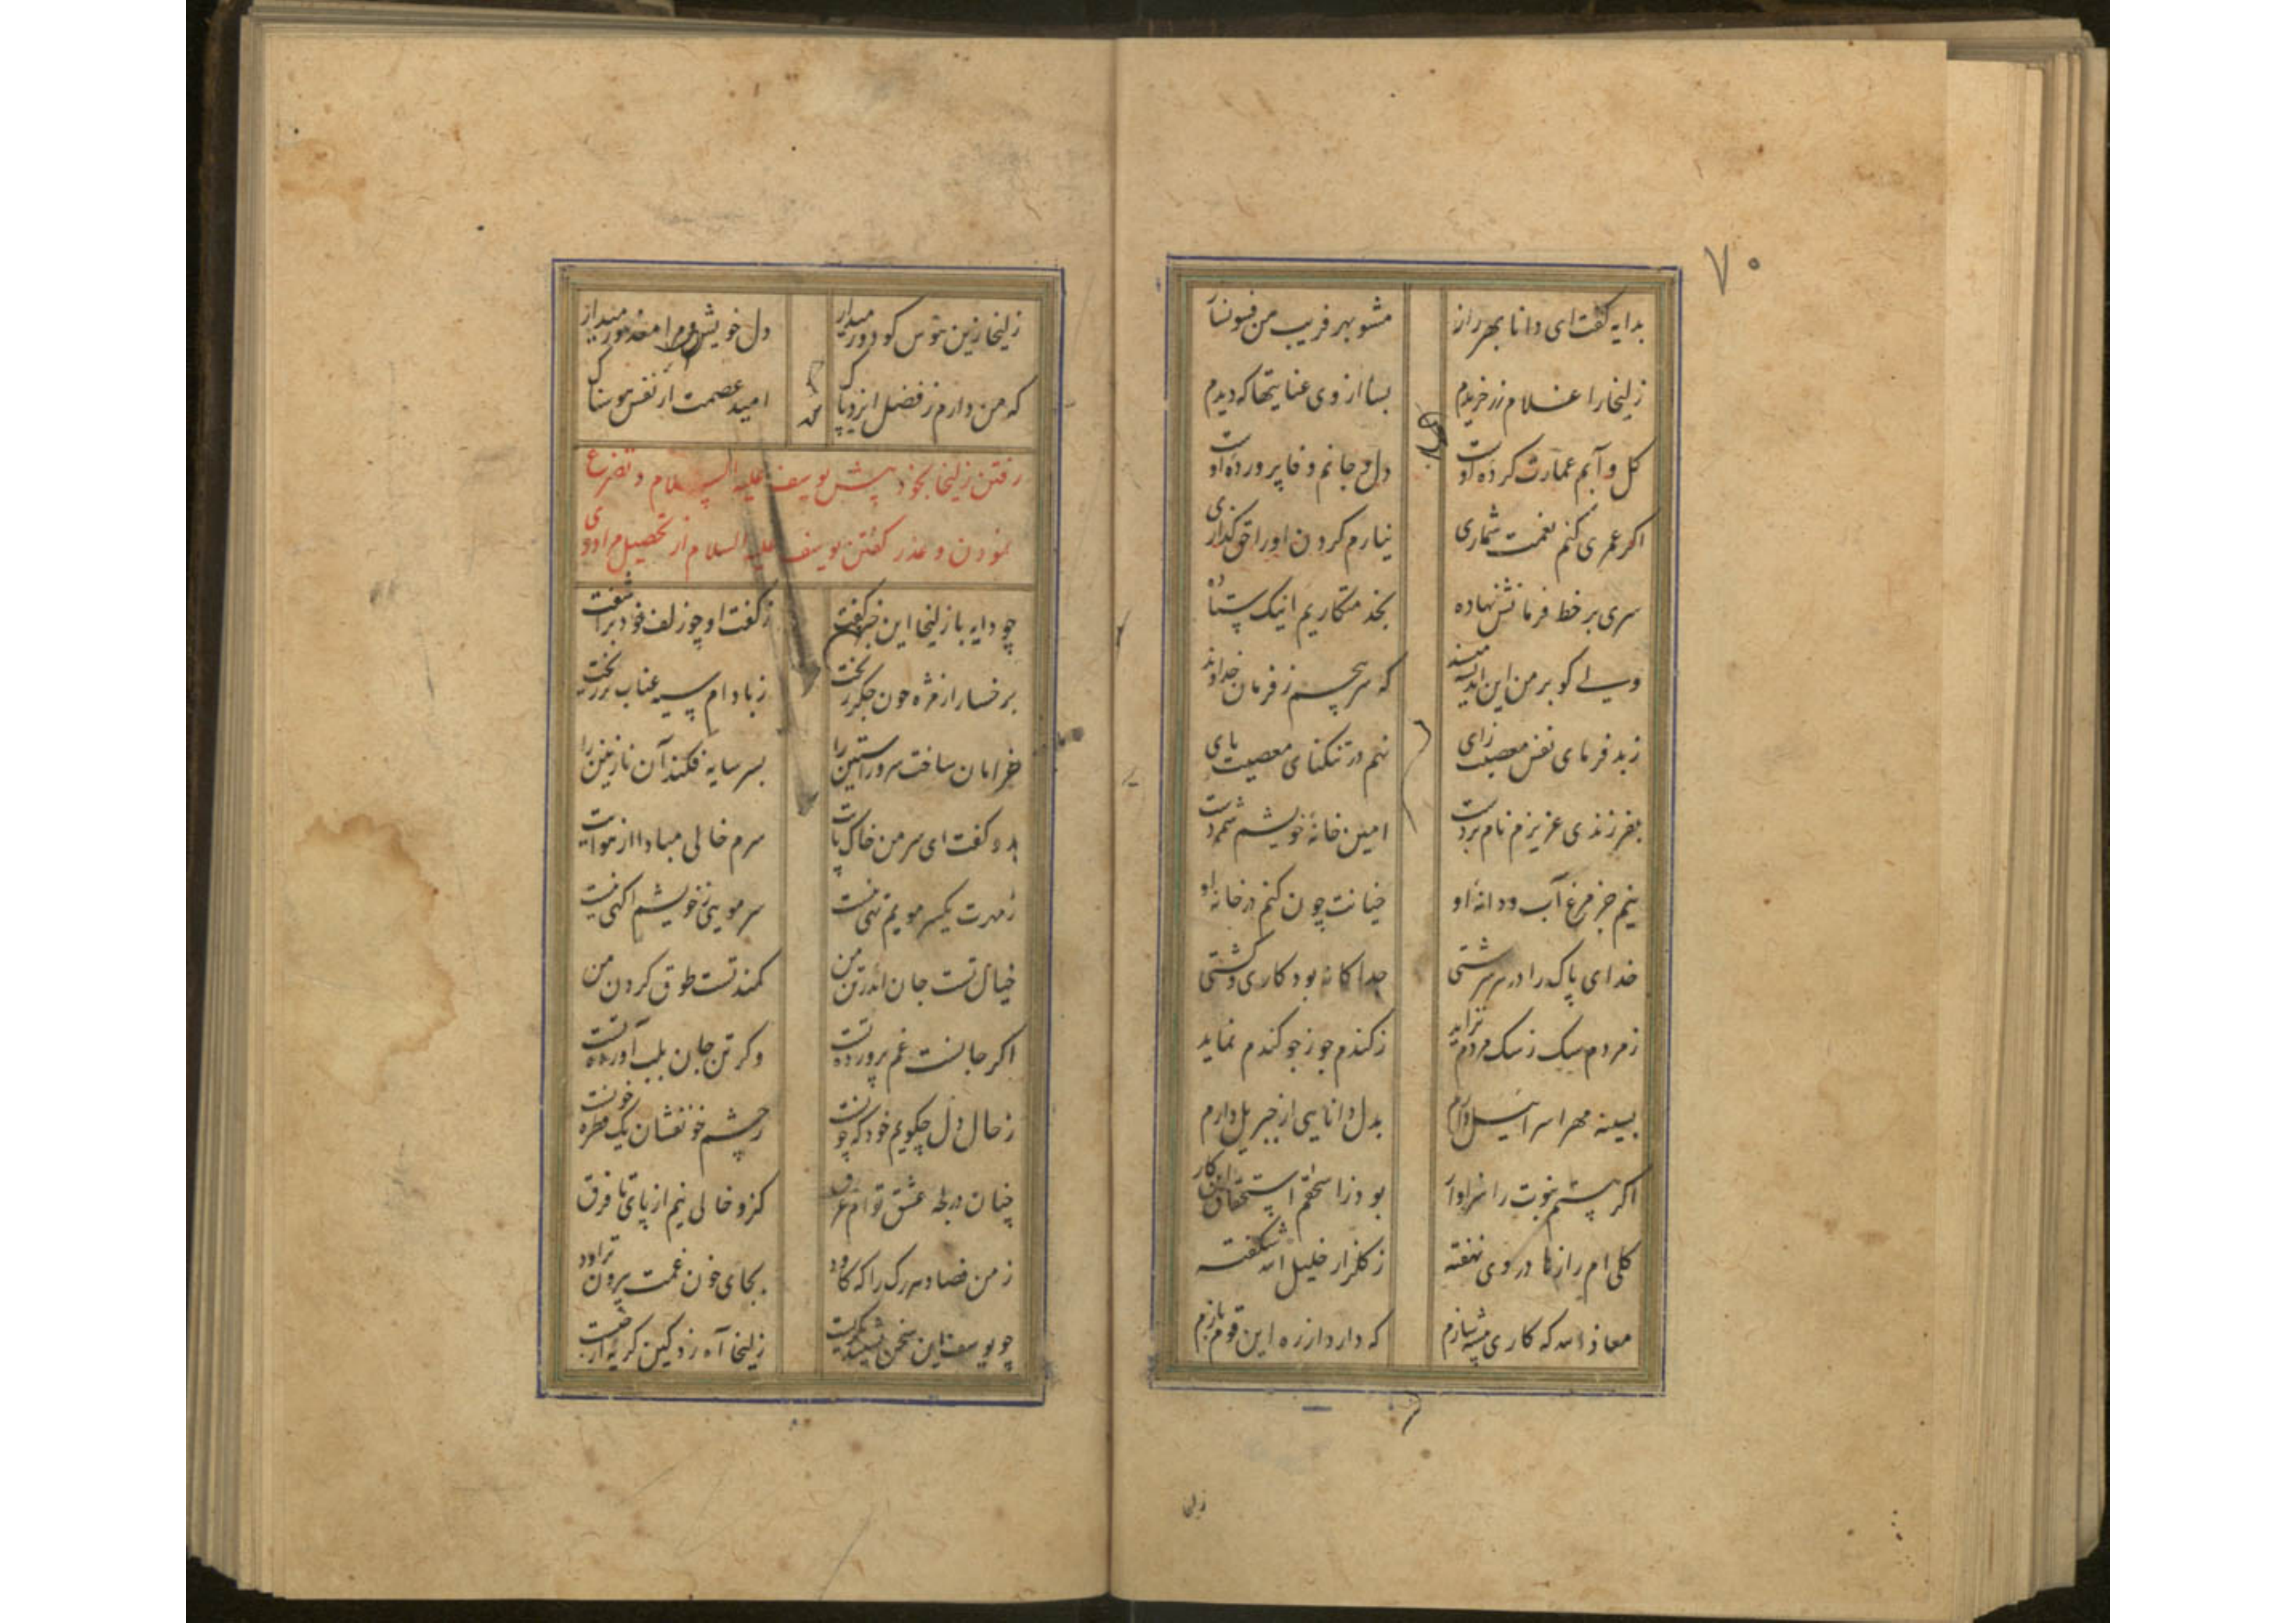 ۷۰
بدایه گفت ای دانا بهر راز مشو بهر فریب من فسونساز
زلیخا را غلام زر خریدم بسا از وی عنایتها که دیدم
گل و آبم عمارت کرده اوست دل و جانم وفا پرورده اوست
اگر عمری کنم نعمت شماری نیارم کردن او را حق گذاری
سری بر خط فرمانش نهاده بخدمتکاریم اینک ستاده
ولی گو بر من این اندیشه مپسند که سر پیچم ز فرمان خداوند
ز بد فرمای نفس معصیت زای نهم در تنگنای معصیت پای
بفرزندی عزیزم نام بردست امین خانهٔ خویشم شمردست
نیم جز مرغ آب و دانهٔ او خیانت چون کنم در خانهٔ او
خدای پاک را در هر سرشتی جداگانه بود کاری و کشتی
ز مردم سگ ز سگ مردم نزاید ز گندم جو ز جو گندم نماید
بسینه مهر اسرائیل دارم بدل دانایی از جبریل دارم
اگر هستم نبوت را سزاوار بود ز اسحقم استحقاق این کار
گلی ام رازها در وی نهفته ز گلزار خلیل الله شکفته
معاذ الله که کاری پیشه سازم که دارد از ره این قوم بازم
زلیخا
زلیخا زین هوس گو دور میدار دل خویش و مرا معذور میدار
که من دارم ز فضل ایزد پاک امید عصمت از نفس هوسناک
رفتن زلیخا بخود پیش یوسف علیه السلام و تضرع
نمودن و عذر گفتن یوسف علیه السلام از تحصیل مراد وی
چو دایه با زلیخا این خبر گفت ز گفت او چو زلف خود برآشفت
بر خسار از مژه خون جگر ریخت ز بادام سیه عناب تر ریخت
خرامان ساخت سرو راستین را بسر سایه فکند آن نازنین را
بدو گفت ای سر من خاک پایت سرم خالی مبادا از هوایت
ز مهرت یکسر مویم تهی نیست سر مویی ز خویشم آگهی نیست
خیال تست جان اندر تن من کمند تست طوق گردن من
اگر جانست غم پرورده تست وگر تن جان بلب آورده تست
ز حال دل چگویم خود که چونست ز چشم خونفشان یک قطره خونست
چنان در لجهٔ عشق توام غرق کزو خالی نیم از پای تا فرق
ز من فصاد هر رگ را که کاود بجای خون غمت بیرون تراود
چو یوسف این سخن بشنید بگریست زلیخا آه زد کین گریه از چیست